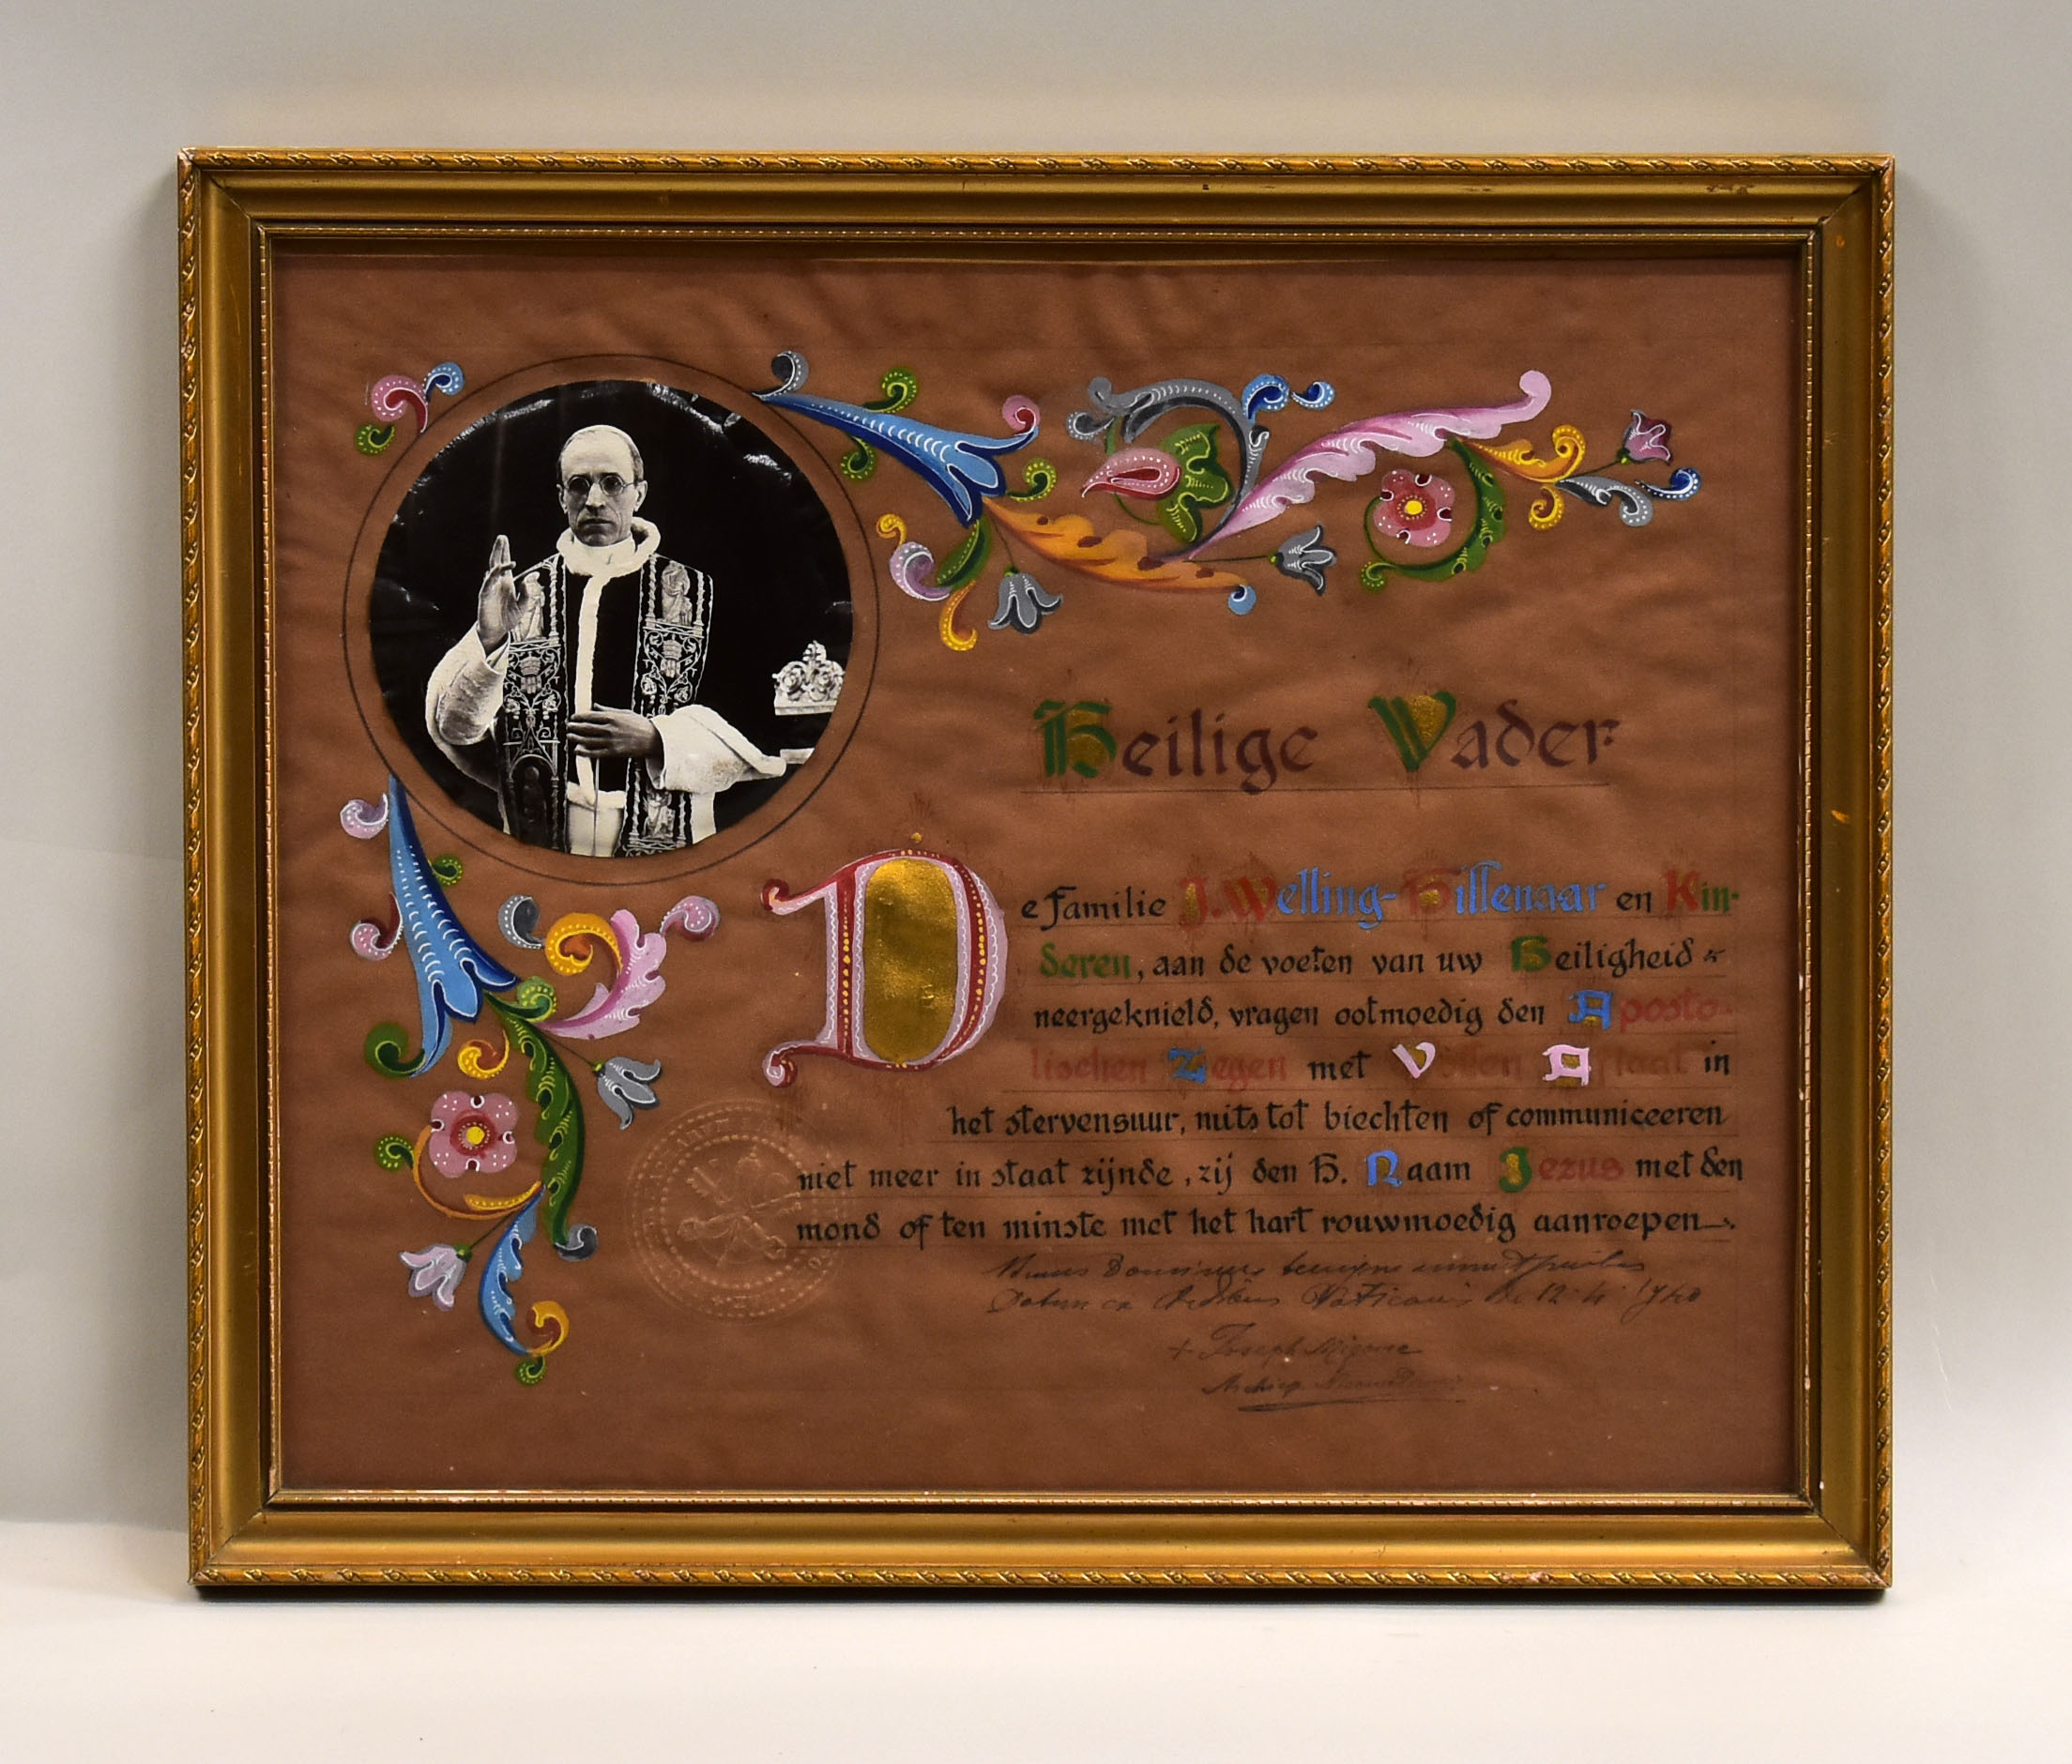 Heilige Vader
De familie J. Welling-Hillenaar en Kin-
deren, aan de voeten van uw Heiligheid
neergeknield, vragen ootmoedig den Aposto-
lischen Zegen met Vollen Aflaat in
het stervensuur, mits tot biechten of communiceeren
niet meer in staat zijnde, zij den H. Naam Jezus met den
mond of ten minste met het hart rouwmoedig aanroepen
Dominus benigne annuit precibus
Datum ex Aedibus Vaticanis die 12·4·1940
+ Joseph Migone